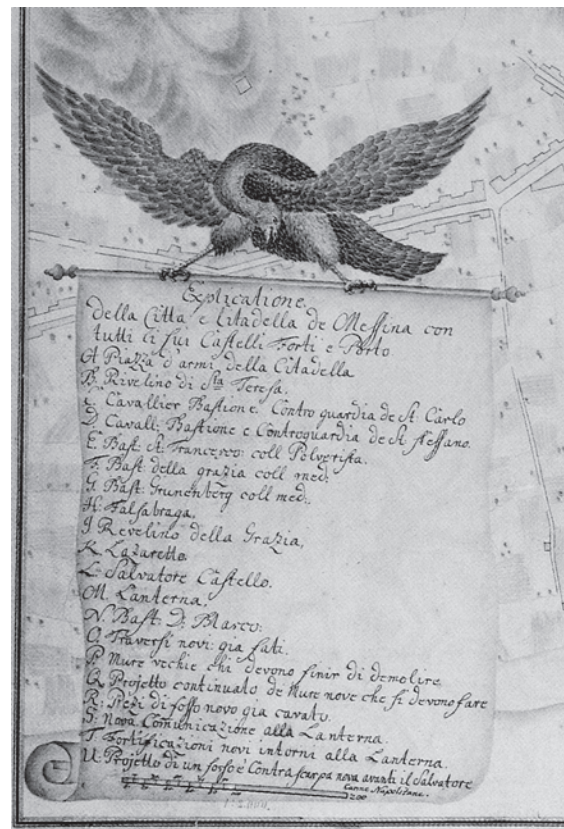 Explicatione.
della Citta e Citadella de Messina con
tutti li sui Castelli Forti e Porto
A Piazza d'armi della Citadella
B. Rivelino di Sta Teresa.
C. Cavallier Bastione. Contro guardia de St. Carlo
D. Cavall: Bastione e Controguardia de St. steffano.
E. Bast: St. Francesco: coll Polverista.
F. Bast: della grazia coll med:
G. Bast: Grunenberg coll med:
H: Falsabraga.
J Revelino della Grazia,
K. Lazaretto
L. Salvatore Castello.
M. Lanterna.
N. Bast: D: Blasco:
O. Traversi novi: gia fati.
P. Mure vechie chi devono finir di demolire
Q. Projetto continuato de Mure nove che si devono fare
R: Pezi di fosso novo gia cavato.
S: Nova Comunicazione alla Lanterna.
T Fortificazioni novi intorni alla Lanterna.
U: Projetto di un fosso è Contrascarpa nova avanti il Salvatore
Canne Napolitane.
200